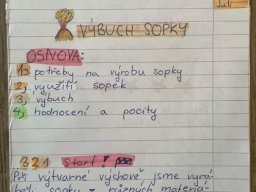 Juli
VÝBUCH SOPKY
OSNOVA:
1, potřeby na výrobu sopky
2, využití sopek
3, výbuch
4, hodnocení a pocity
3 2 1 Start!
Při výtvarné výchově jsme vyrá-
běli sopky z různých materiá-